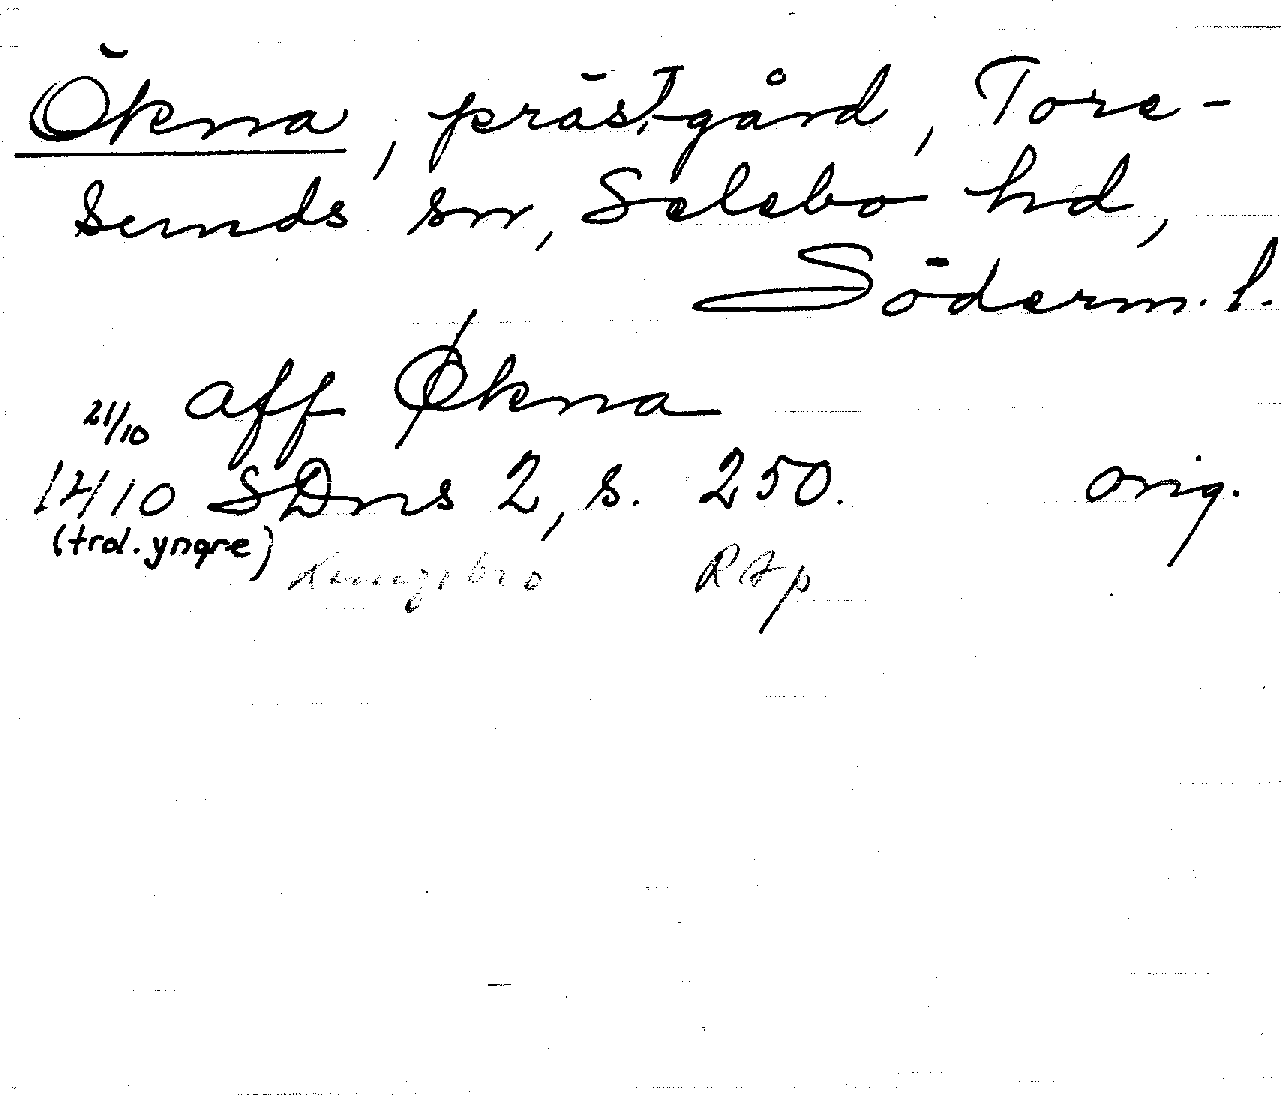 Ökna, präst-gård, Tore-
sunds sn, Selebo hd,
Söderm. l.
21/10 aff Økna
1410 SDns 2, s. 250. orig.
(trol. yngre) RAp